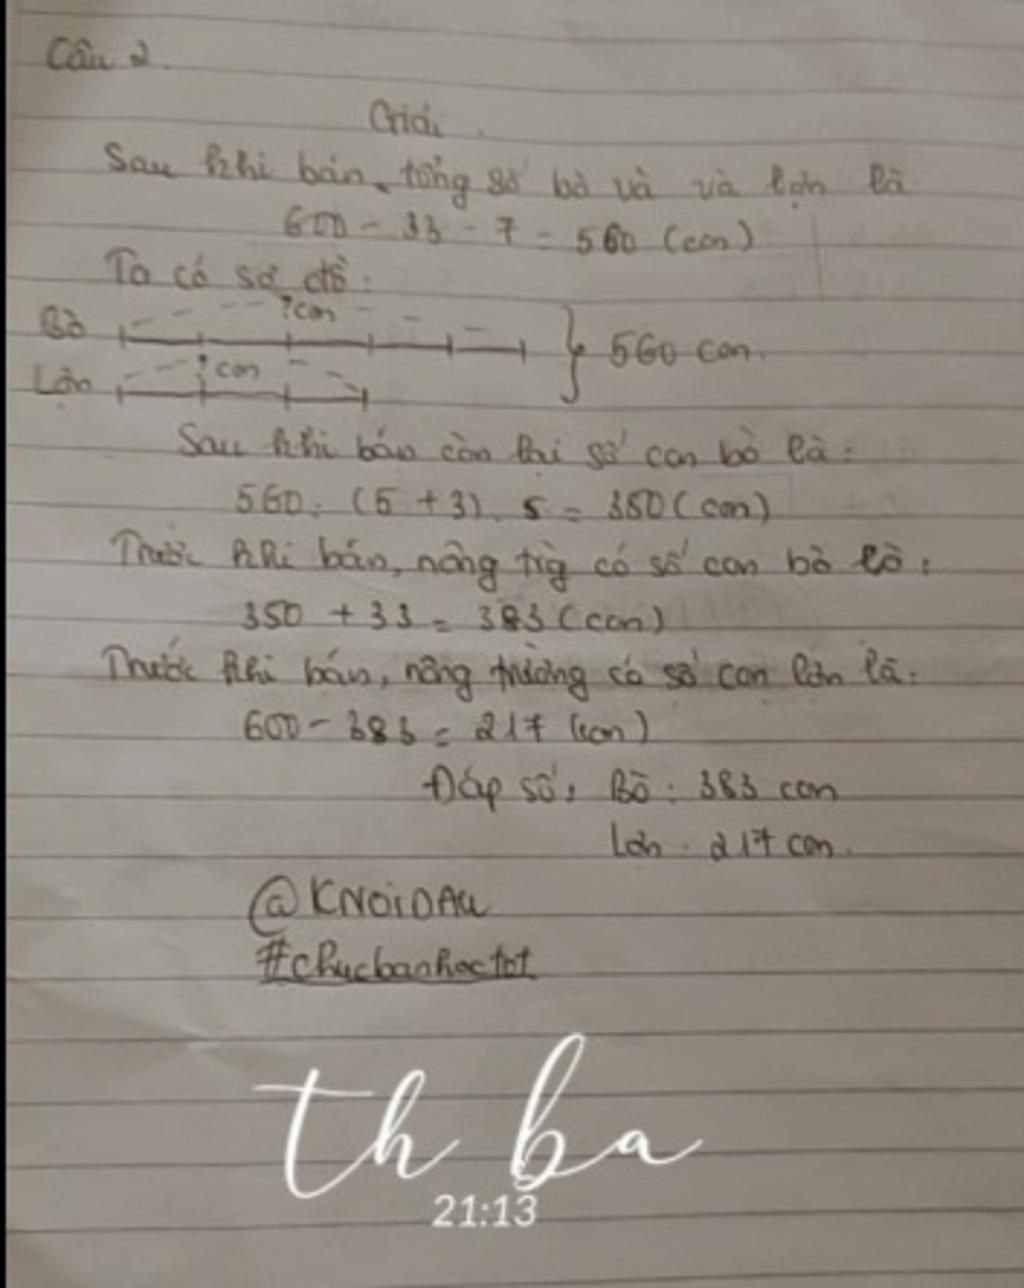 Câu 2.
Giải.
Sau khi bán, tổng số bò và và lợn là
600 - 33 - 7 = 560 (con)
Ta có sơ đồ:
? con
Bò
560 con.
? con
Lợn
Sau khi bán còn lại số con bò là:
560 : (5 + 3) . 5 = 350 (con)
Trước khi bán, nông trg có số con bò là:
350 + 33 = 383 (con)
Trước khi bán, nông trường có số con lợn là:
600 - 383 = 217 (con)
Đáp số: Bò: 383 con
Lợn: 217 con.
@KNOiDAU
#chucbanhoctot
th ba
21:13